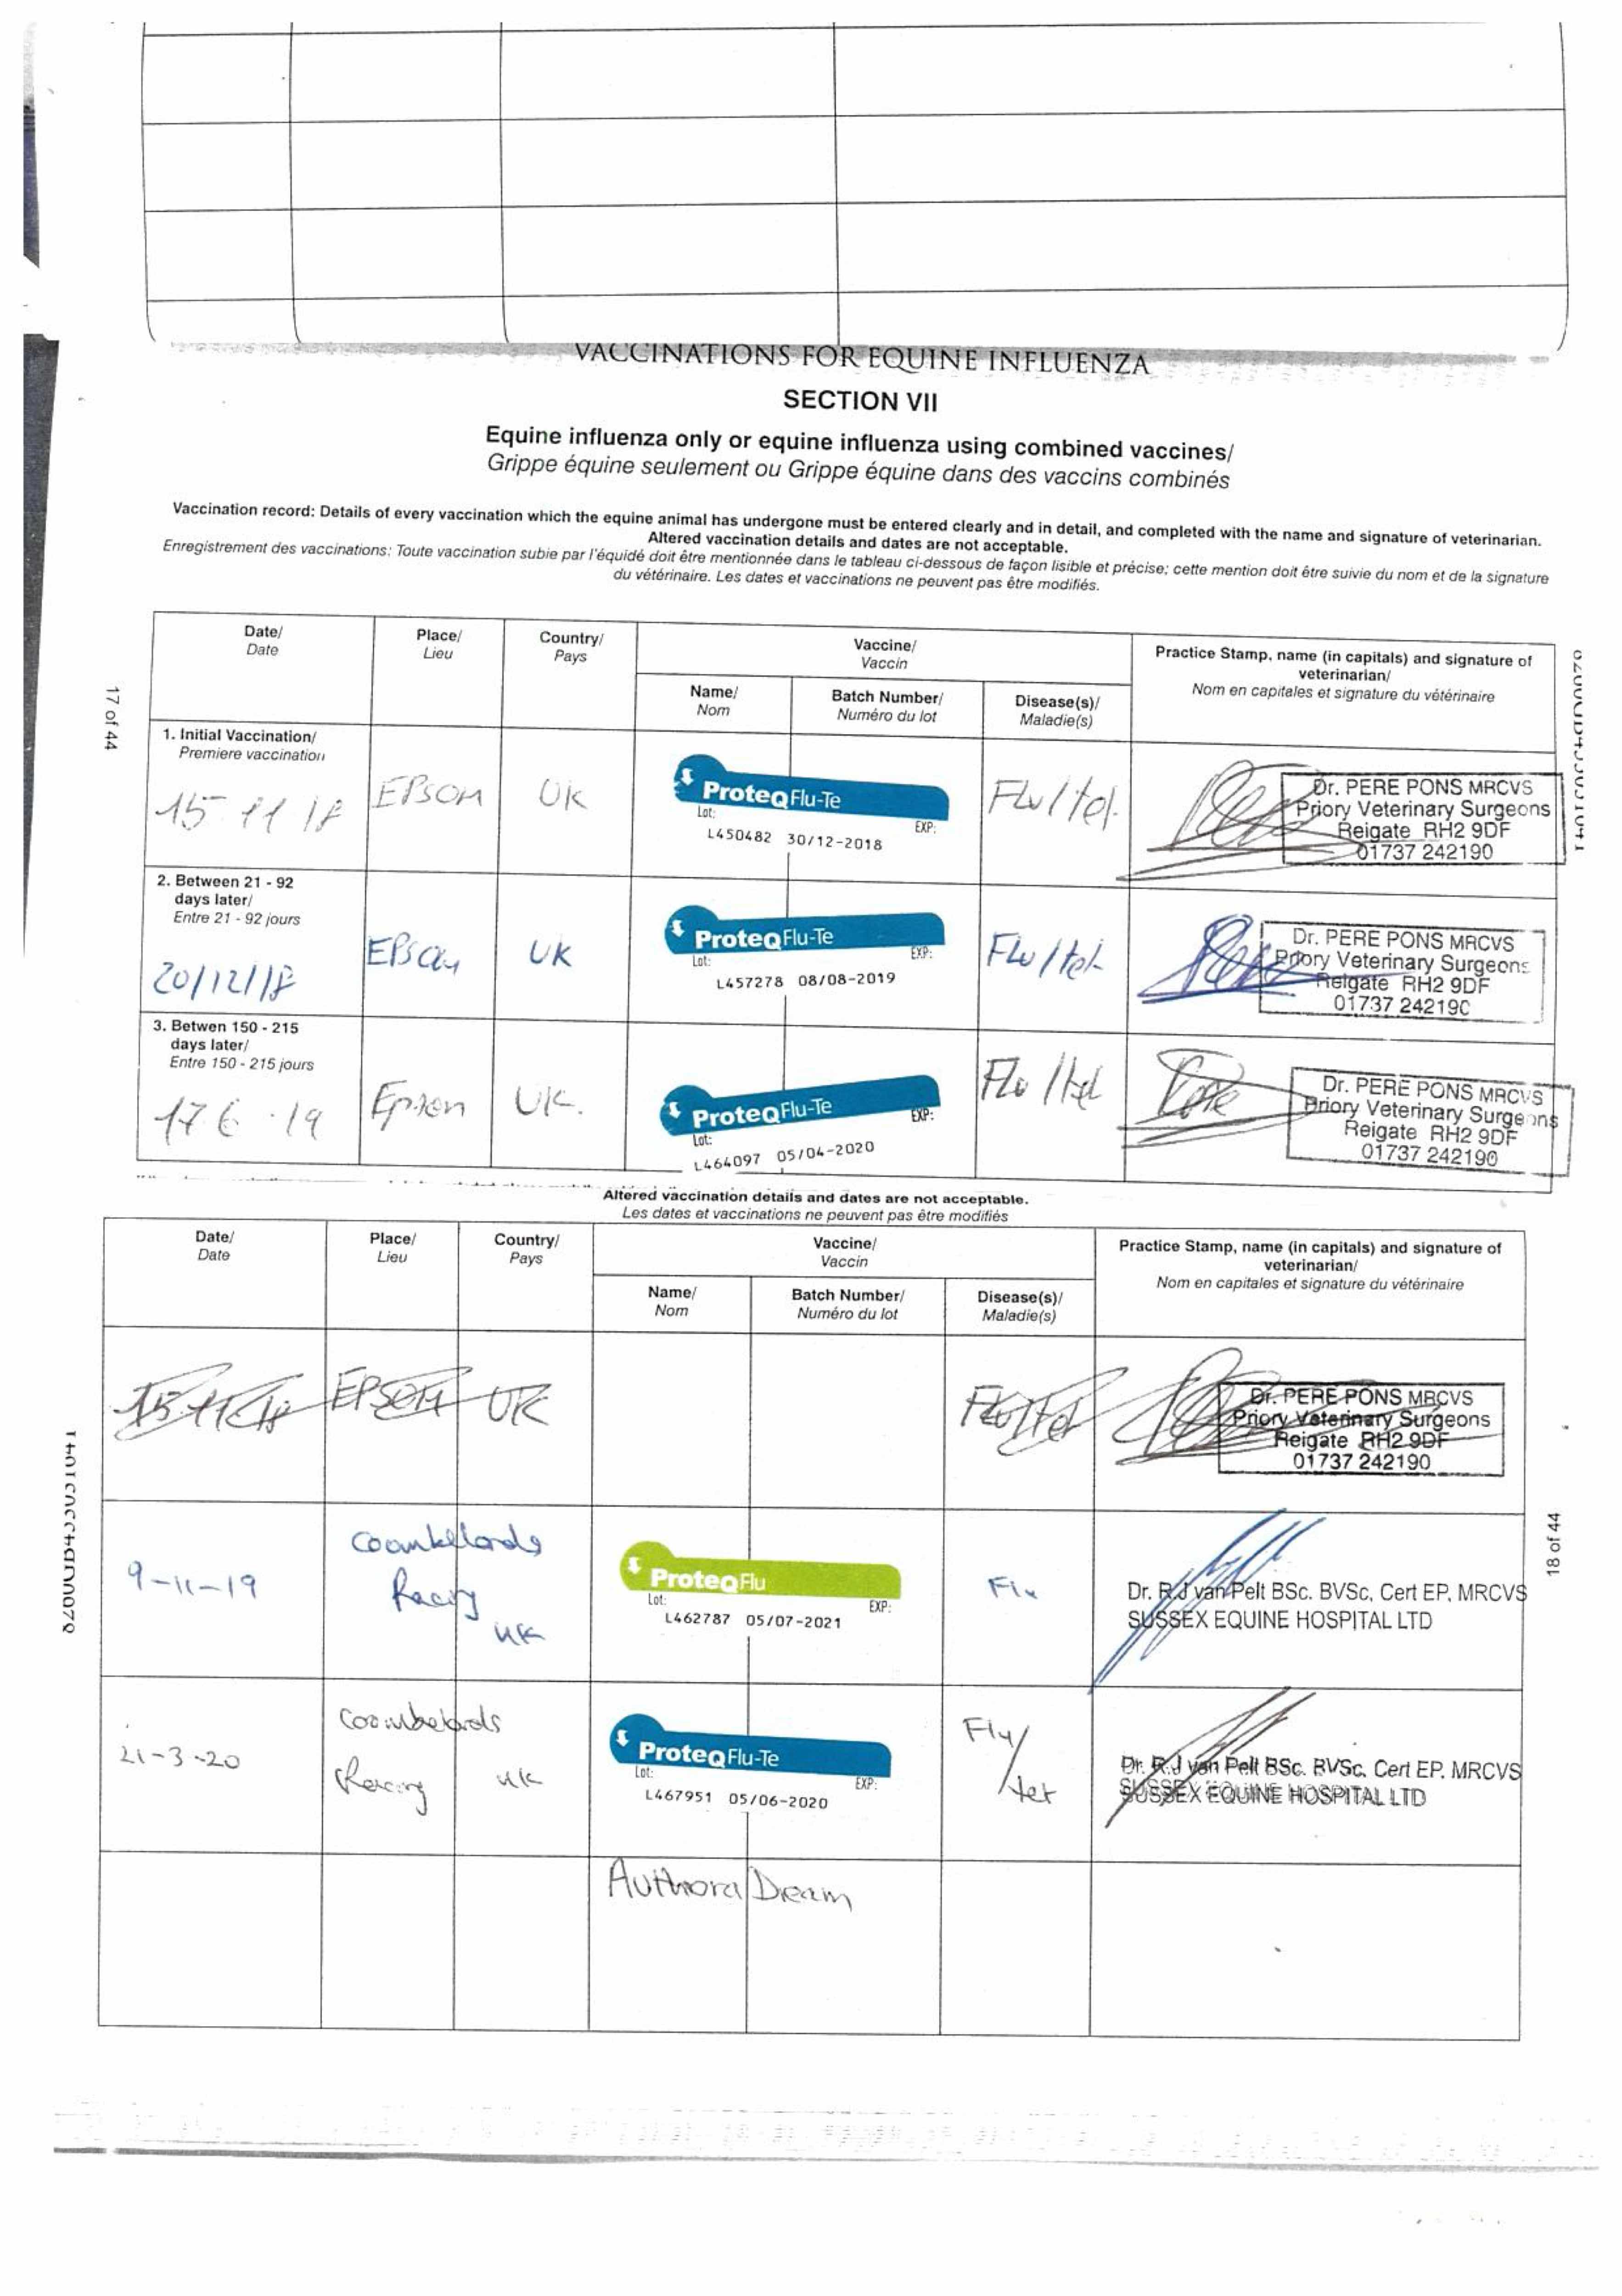 VACCINATIONS FOR EQUINE INFLUENZA
SECTION VII
Equine influenza only or equine influenza using combined vaccines/
Grippe équine seulement ou Grippe équine dans des vaccins combinés
Vaccination record: Details of every vaccination which the equine animal has undergone must be entered clearly and in detail, and completed with the name and signature of veterinarian.
Altered vaccination details and dates are not acceptable.
Enregistrement des vaccinations: Toute vaccination subie par l'équidé doit être mentionnée dans le tableau ci-dessous de façon lisible et précise; cette mention doit être suivie du nom et de la signature
du vétérinaire. Les dates et vaccinations ne peuvent pas être modifiés.
17 of 44
Date/
Date
Place/
Lieu
Country/
Pays
Vaccine/
Vaccin
Practice Stamp, name (in capitals) and signature of
veterinarian/
Nom en capitales et signature du vétérinaire
Name/
Nom
Batch Number/
Numéro du lot
Disease(s)/
Maladie(s)
1. Initial Vaccination/
Premiere vaccination
15 11 18
EPSOM
UK
ProteqFlu-Te
Lot:
EXP:
L450482 30/12-2018
Flu/tet.
Dr. PERE PONS MRCVS
Priory Veterinary Surgeons
Reigate RH2 9DF
01737 242190
2. Between 21 - 92
days later/
Entre 21 - 92 jours
20/12/18
EPSOM
UK
ProteqFlu-Te
Lot:
EXP:
L457278 08/08-2019
Flu/tet
Dr. PERE PONS MRCVS
Priory Veterinary Surgeons
Reigate RH2 9DF
01737 242190
3. Betwen 150 - 215
days later/
Entre 150 - 215 jours
17 6 . 19
Epsom
UK.
ProteqFlu-Te
Lot:
EXP:
L464097 05/04-2020
Flu/tet
Dr. PERE PONS MRCVS
Priory Veterinary Surgeons
Reigate RH2 9DF
01737 242190
Altered vaccination details and dates are not acceptable.
Les dates et vaccinations ne peuvent pas être modifiés
Date/
Date
Place/
Lieu
Country/
Pays
Vaccine/
Vaccin
Practice Stamp, name (in capitals) and signature of
veterinarian/
Nom en capitales et signature du vétérinaire
Name/
Nom
Batch Number/
Numéro du lot
Disease(s)/
Maladie(s)
15 11 18
EPSOM
UK
Flu/tet
Dr. PERE PONS MRCVS
Priory Veterinary Surgeons
Reigate RH2 9DF
01737 242190
18 of 44
9-11-19
Coombelands
Racing
UK
ProteqFlu
Lot:
EXP:
L462787 05/07-2021
Flu
Dr. R.J van Pelt BSc. BVSc, Cert EP, MRCVS
SUSSEX EQUINE HOSPITAL LTD
21-3-20
Coombelands
Racing
UK
ProteqFlu-Te
Lot:
EXP:
L467951 05/06-2020
Flu/
tet
Dr. R.J van Pelt BSc. BVSc, Cert EP. MRCVS
SUSSEX EQUINE HOSPITAL LTD
Authora Dream